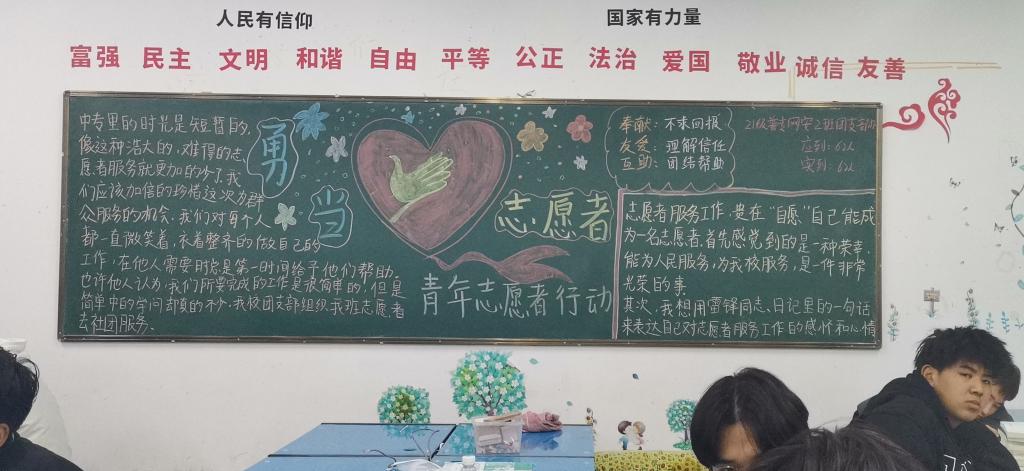 人民有信仰
国家有力量
富强 民主 文明 和谐 自由 平等 公正 法治 爱国 敬业 诚信 友善
中专里的时光是短暂的,
像这种浩大的,难得的志
愿者服务就更加的少了,我
们应该加倍的珍惜这次为群
众服务的机会,我们对每个人
都一直微笑着,衣着整齐的做自己的
工作,在他人需要时总是第一时间给予他们帮助。
也许他人认为,我们所要完成的工作是很简单的!但是
简单中的学问却真的不少。我校团支部组织我班志愿者
去社团服务。
勇
当
志愿者
青年志愿者行动
奉献:不求回报
友爱:理解信任
互助:团结帮助
应到:62人
实到:62人
志愿者服务工作,贵在“自愿”自己能成
为一名志愿者,首先感觉到的是一种荣幸,
能为人民服务,为我校服务,是一件非常
光荣的事
其次,我想用雷锋同志,日记里的一句话
来表达自己对志愿者服务工作的感怀和心情